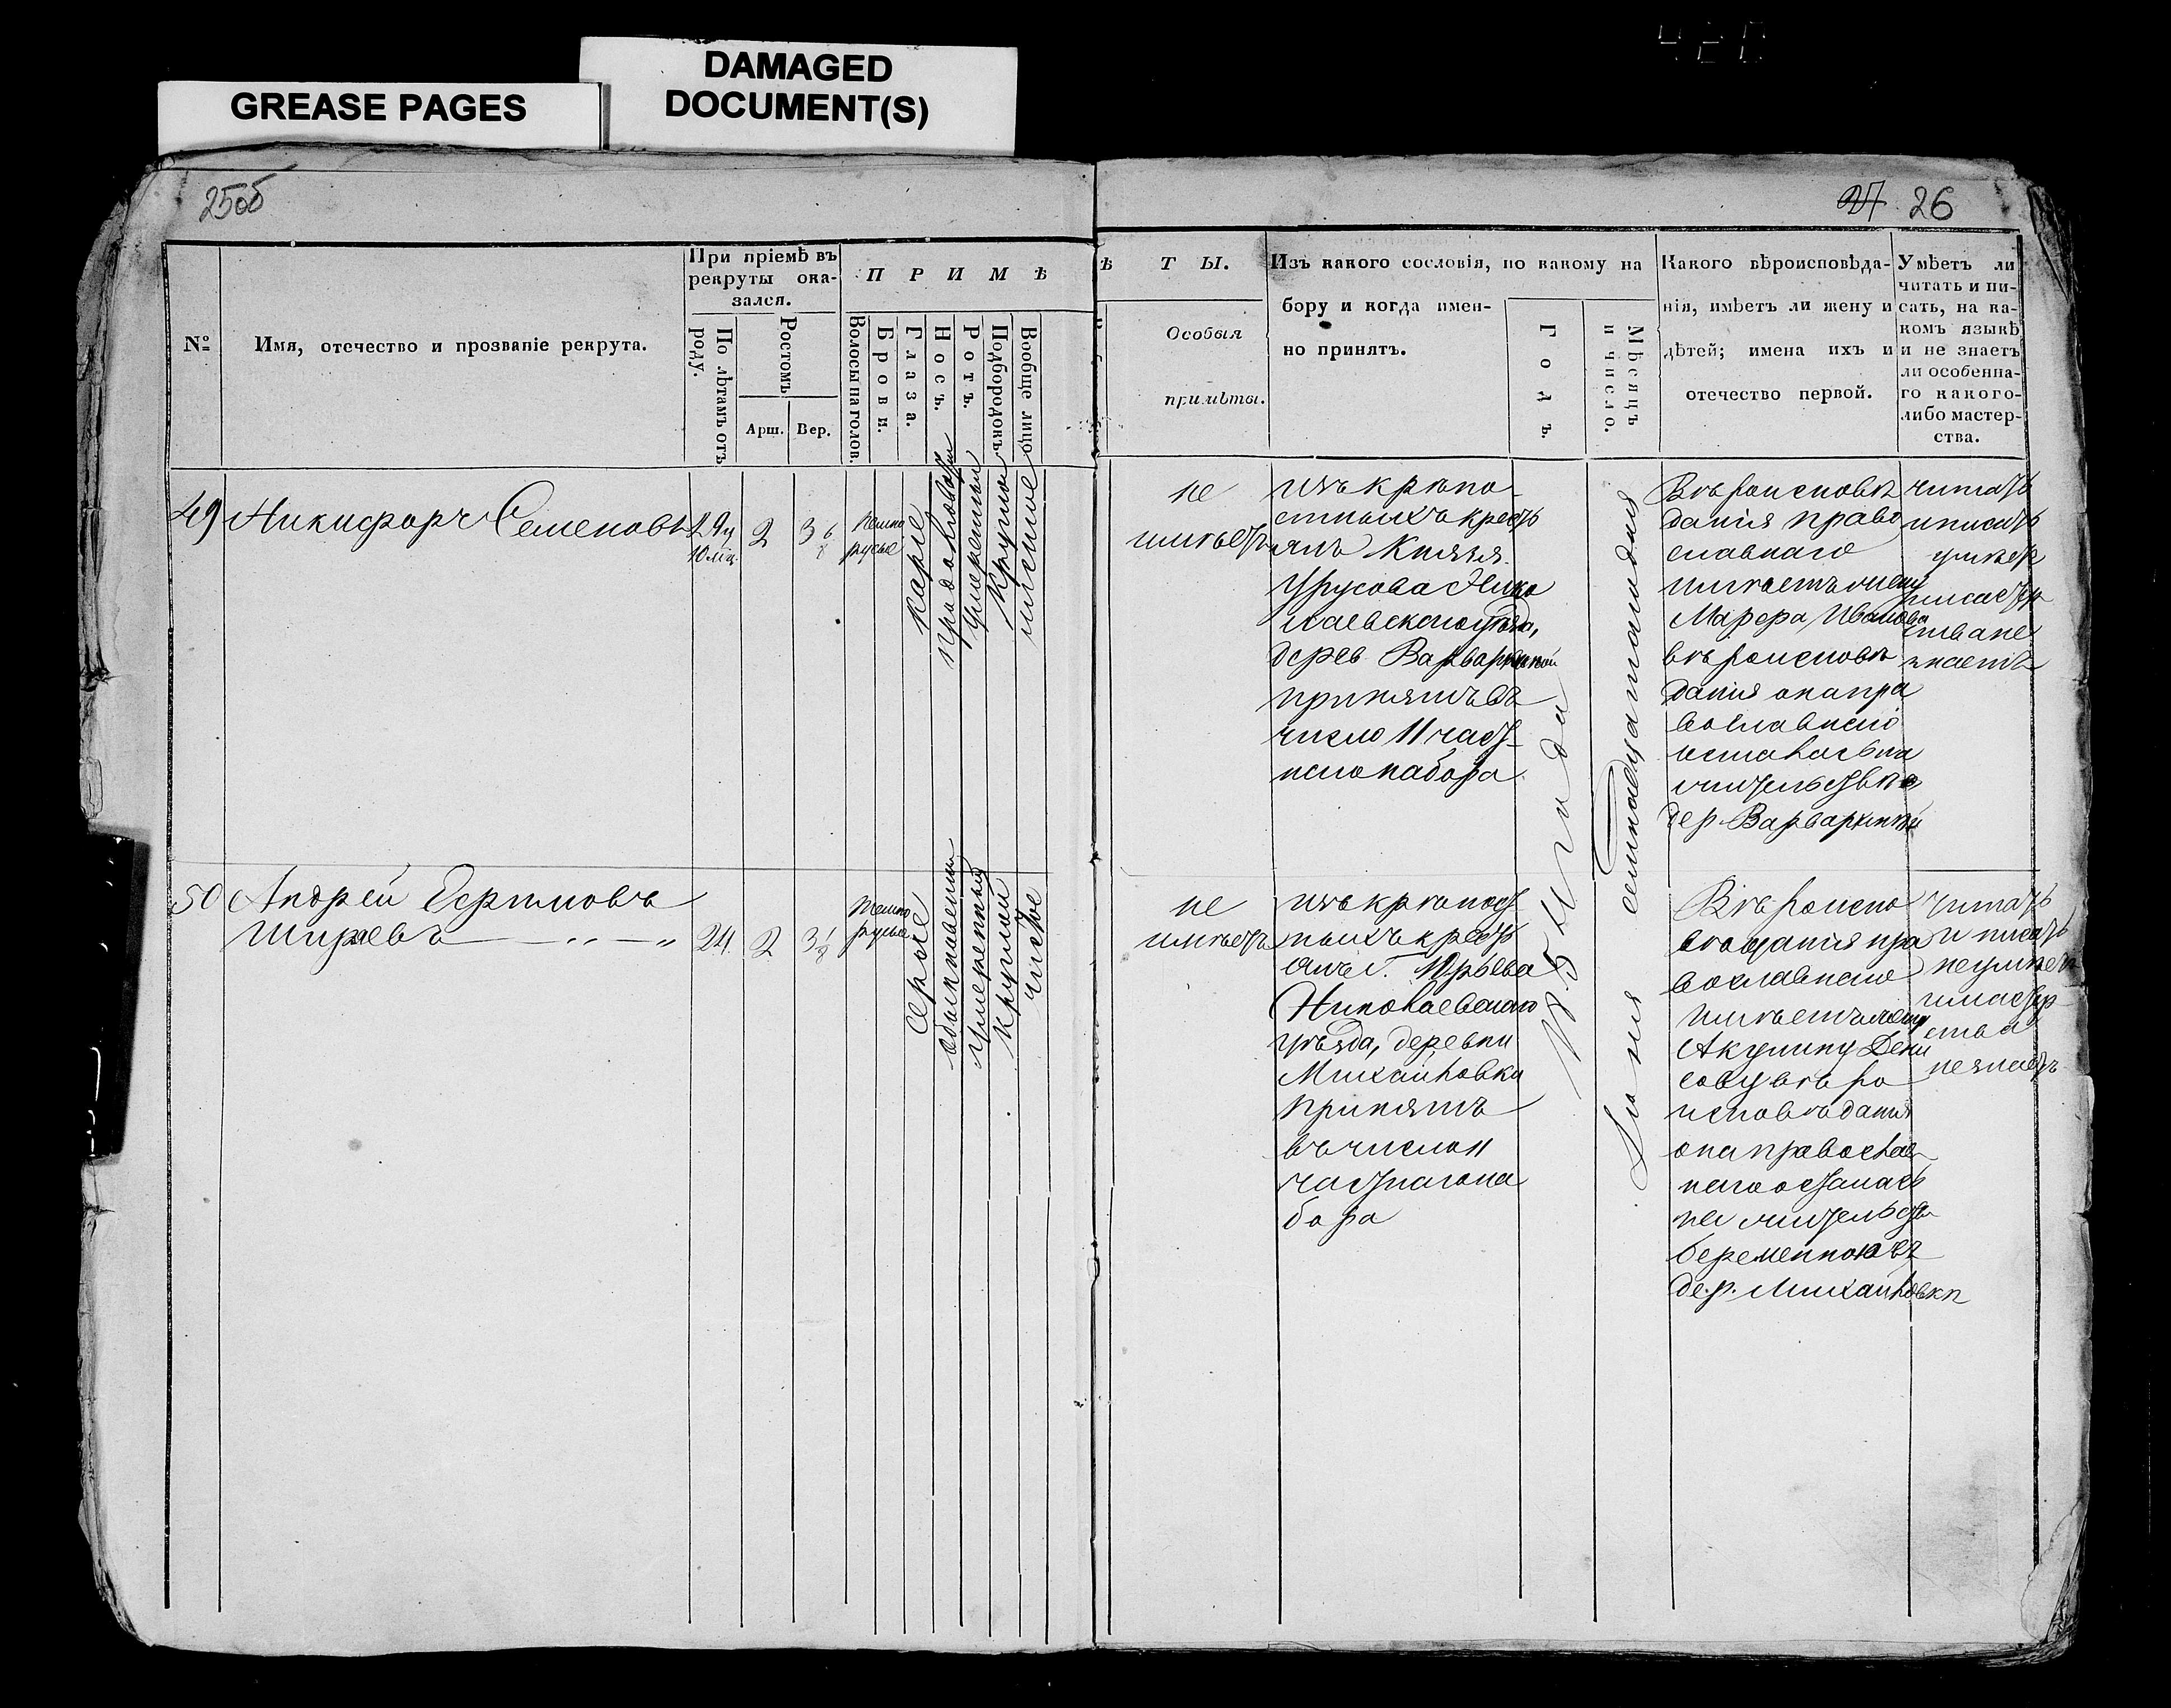 GREASE PAGES
DAMAGED
DOCUMENT(S)
25об
27 26
№
Имя, отечество и прозваніе рекрута.
При пріемѣ въ
рекруты ока-
зался.
По лѣтамъ отъ
роду.
Ростомъ
Арш. Вер.
П Р И М Ѣ
Волосы на голов.
Брови.
Глаза.
Носъ.
Ротъ.
Подбородокъ
Вообще лицо
Ѣ Т Ы.
Особыя
примѣты.
Изъ какого сословія, по какому на
бору и когда имен-
но принятъ.
Годъ.
Мѣсяцъ
и число.
Какого вѣроисповѣда-
нія, имѣетъ ли жену и
дѣтей; имена ихъ и
отечество первой.
Умѣетъ ли
читать и пи-
сать, на ка-
комъ языкѣ
и не знаетъ
ли особенна-
го какого-
либо мастер-
ства.
49 Никифоръ Семеновъ
2 3 6/8
темно
русые
карие
умеренный
круглой
чистое
не
имѣетъ
изъ крѣпо-
стныхъ кресть
янъ Князя
Урусова Нико
лаевскаго уѣзда,
дерев. Варваркиной
принятъ въ
число 11 част-
наго набора
1854 года
Іюня семнадцатаго дня
Вѣроисповѣ
данія право
славнаго
имѣетъ жену
Марфа Иванова
вѣроисповѣ
данія она пра
вославнаго
осталась на
жительствѣ
дер. Варваркиной
читать
и писать
умѣетъ
мастер
ства не
знаетъ
50 Андрей Ефимовъ
Ширяевъ
24. 2 3 1/8
темно
русые
серые
обыкновенный
умеренный
круглый
чистое
не
имѣетъ
изъ крѣпост
ныхъ кресть
янъ г. Юрьева
Николаевскаго
уѣзда, деревни
Михайловки
принятъ
въ число 11
частнаго на
бора
Вѣроиспо
вѣданія пра
вославнаго
имѣетъ жену
Акулину Дени
сову вѣро
исповѣданія
она православ
наго осталась
на жительствѣ
беременною въ
дер. Михайловкѣ
читать
и писать
не умѣетъ
и мастер
ства
не знаетъ